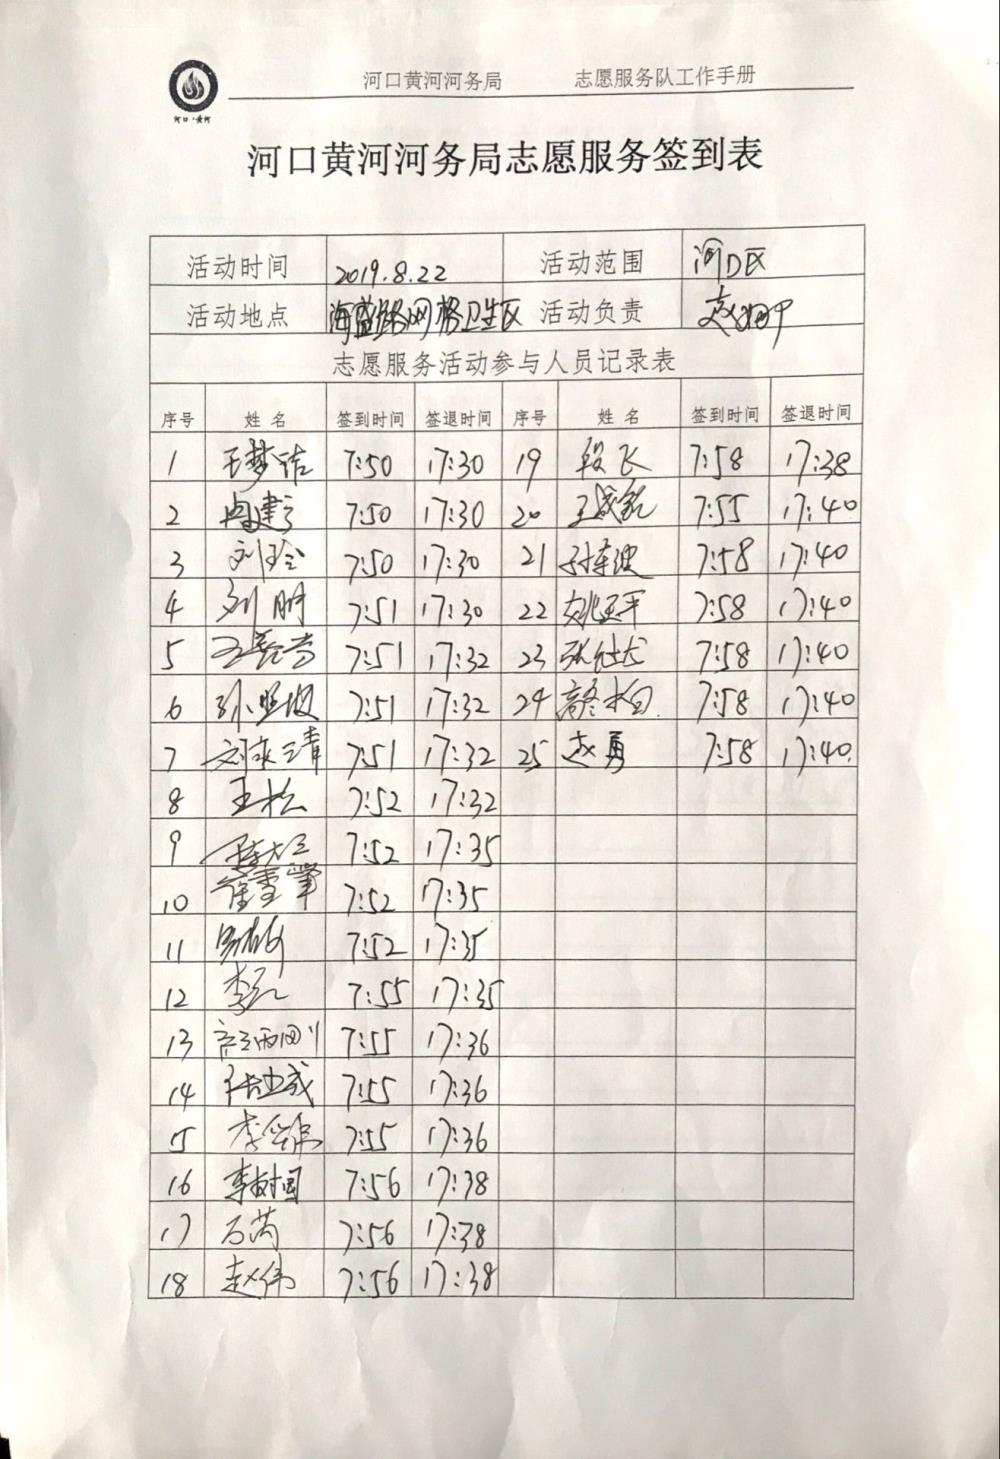 河口黄河河务局 志愿服务队工作手册
河口·黄河
河口黄河河务局志愿服务签到表
活动时间 2019.8.22 活动范围 河口区
活动地点 海盛路网格卫生区 活动负责
志愿服务活动参与人员记录表
序号 姓名 签到时间 签退时间 序号 姓名 签到时间 签退时间
1 王梦洁 7:50 17:30 19 段飞 7:58 17:38
2 7:50 17:30 20 7:55 17:40
3 刘玲 7:50 17:30 21 孙东波 7:58 17:40
4 刘朋 7:51 17:30 22 姚亚平 7:58 17:40
5 7:51 17:32 23 7:58 17:40
6 7:51 17:32 24 7:58 17:40
7 7:51 17:32 25 赵勇 7:58 17:40
8 王松 7:52 17:32
9 7:52 17:35
10 7:52 17:35
11 7:52 17:35
12 7:55 17:35
13 7:55 17:36
14 7:55 17:36
15 7:55 17:36
16 李树国 7:56 17:38
17 万芮 7:56 17:38
18 赵伟 7:56 17:38